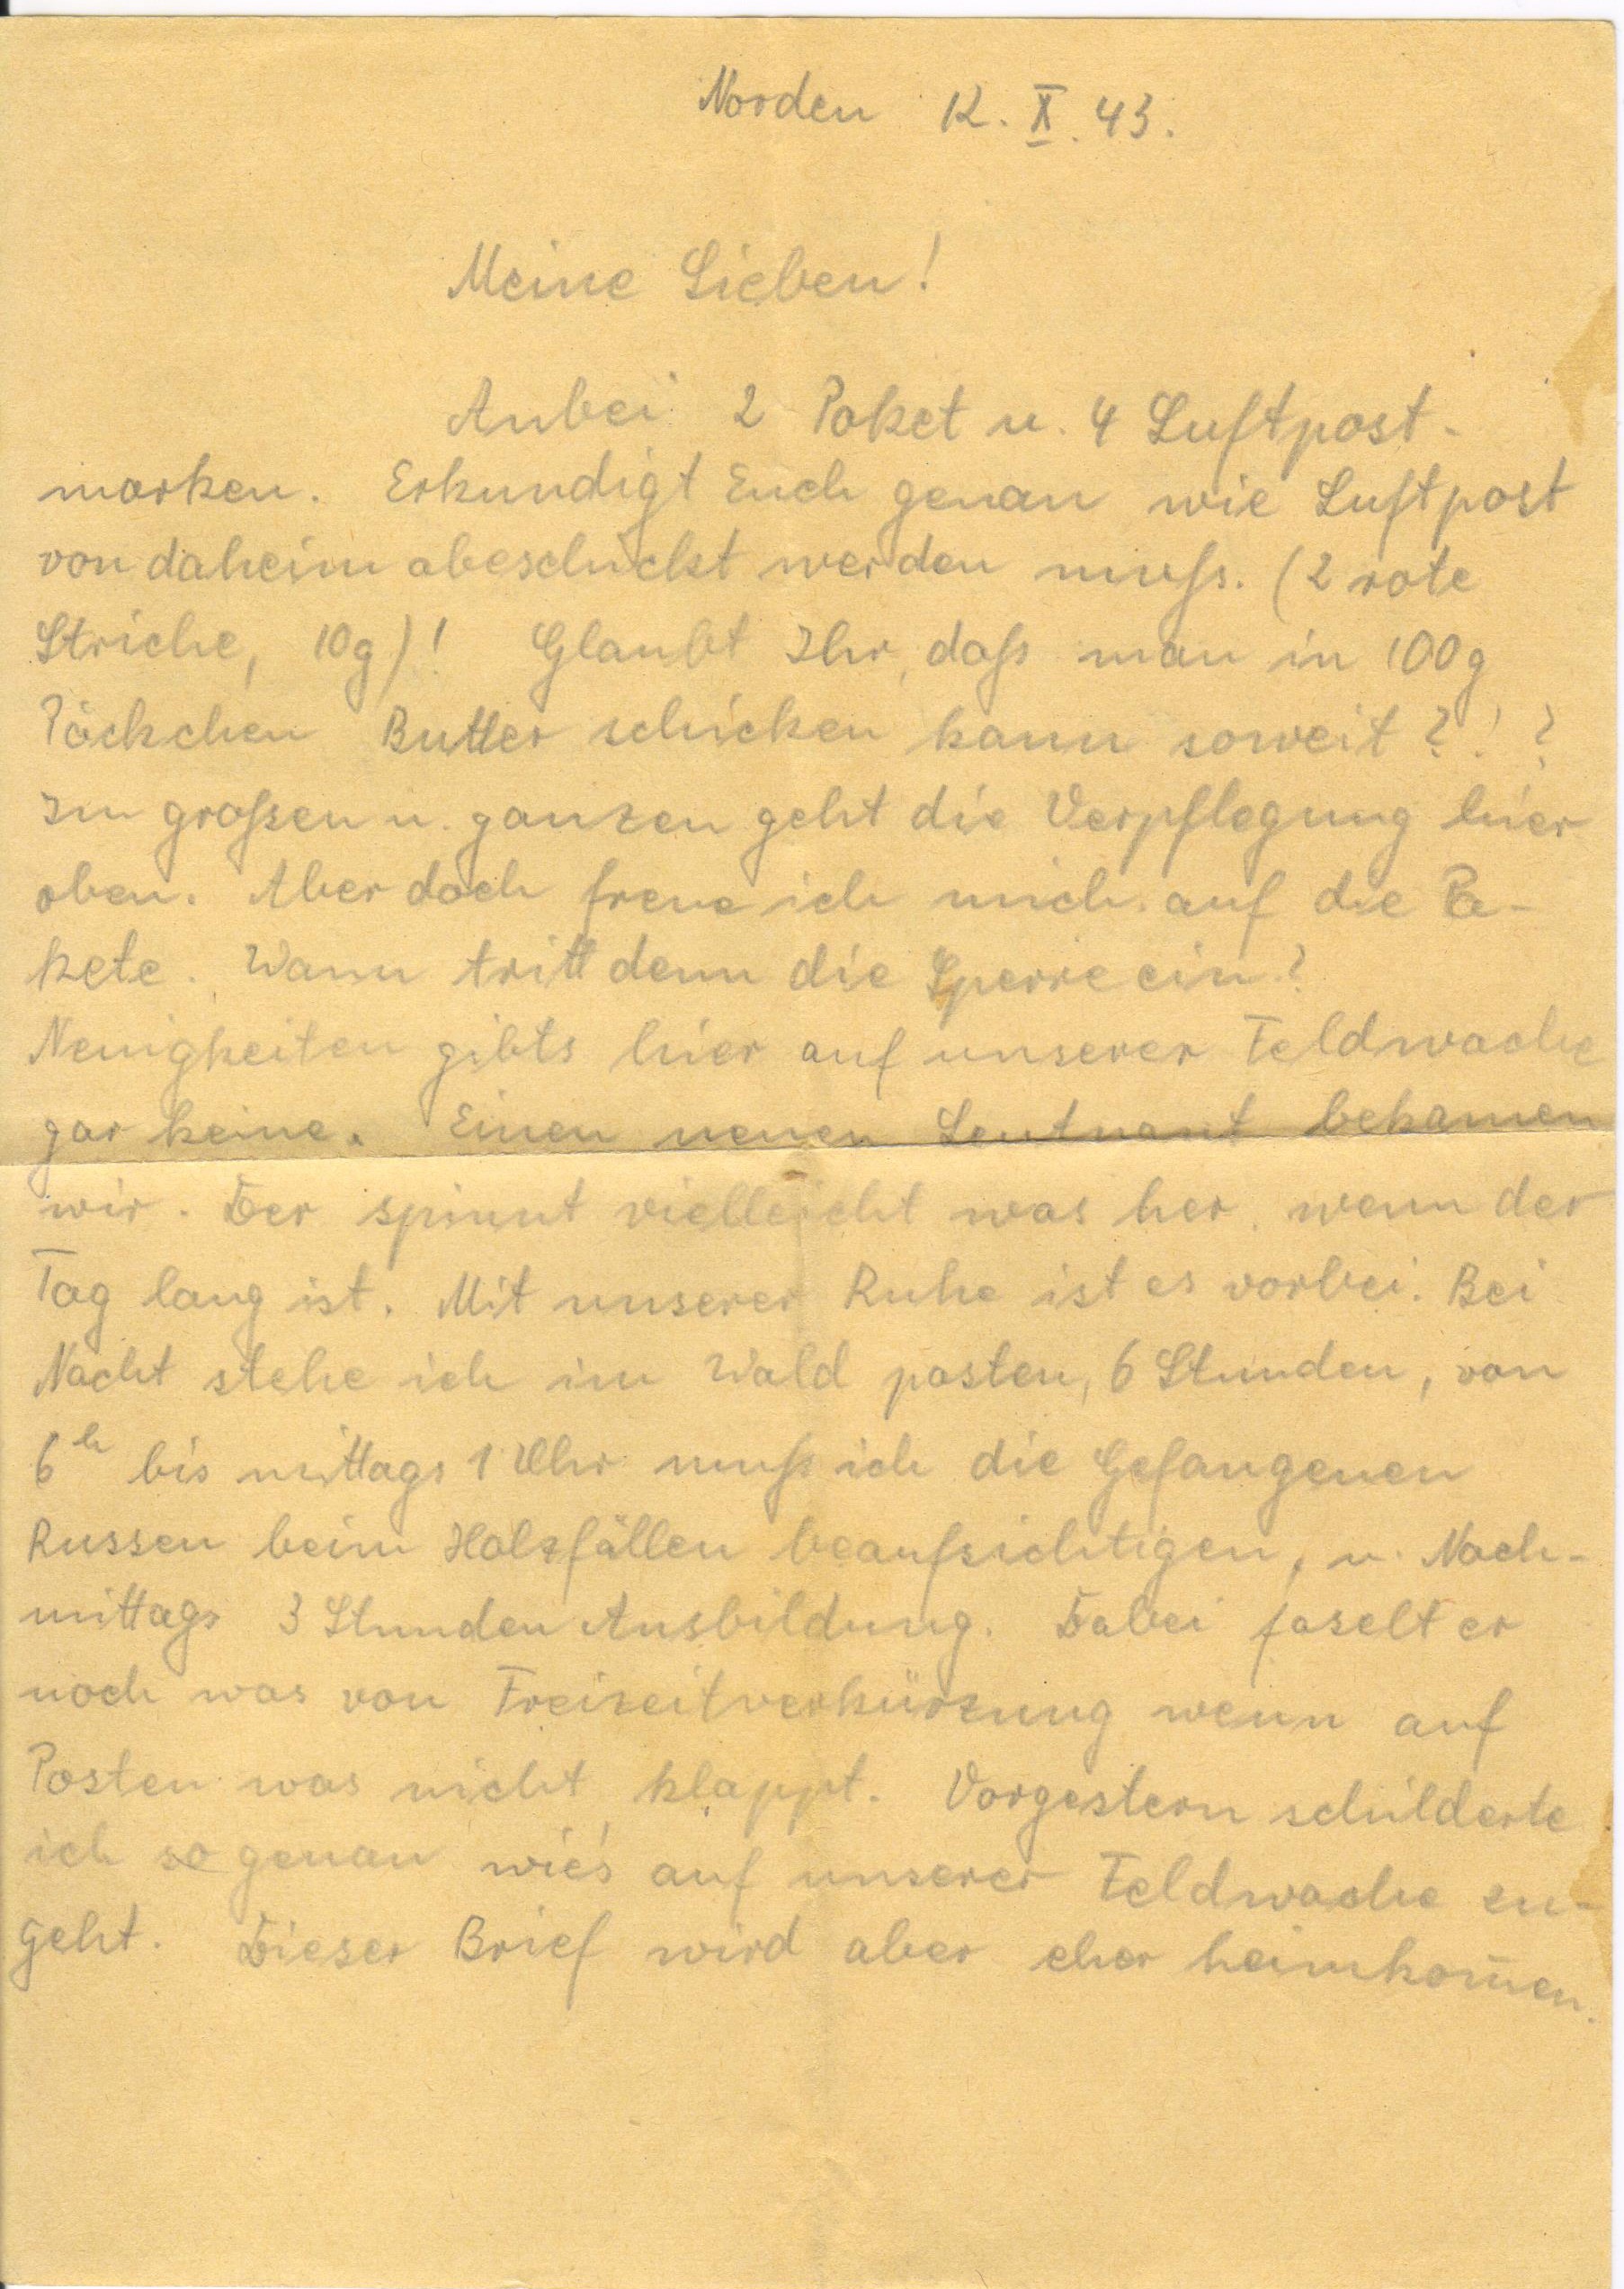 Norden 12. X. 43.
Meine Lieben!
Anbei 2 Paket u. 4 Luftpost-
marken. Erkundigt Euch genau wie Luftpost
von daheim abeschickt werden muß. (2 rote
Striche, 10g)! Glaubt Ihr, daß man in 100g
Päckchen Butter schicken kann soweit?!?
Im großen u. ganzen geht die Verpflegung hier
oben. Aber doch freue ich mich auf die Pa-
kete. Wann tritt denn die Sperre ein?
Neuigkeiten gibts hier auf unserer Feldwache
gar keine. Einen neuen Leutnant bekamen
wir. Der spinnt vielleicht was her, wenn der
Tag lang ist. Mit unserer Ruhe ist es vorbei. Bei
Nacht stehe ich im Wald posten, 6 Stunden, von
6h bis mittags 1 Uhr muß ich die Gefangenen
Russen beim Holzfällen beaufsichtigen, u. Nach-
mittags 3 Stunden Ausbildung. Dabei faselt er
noch was von Freizeitverkürzung wenn auf
Posten was nicht klappt. Vorgestern schilderte
ich so genau wie's auf unserer Feldwache zu-
geht. Dieser Brief wird aber eher heimkom̄en.